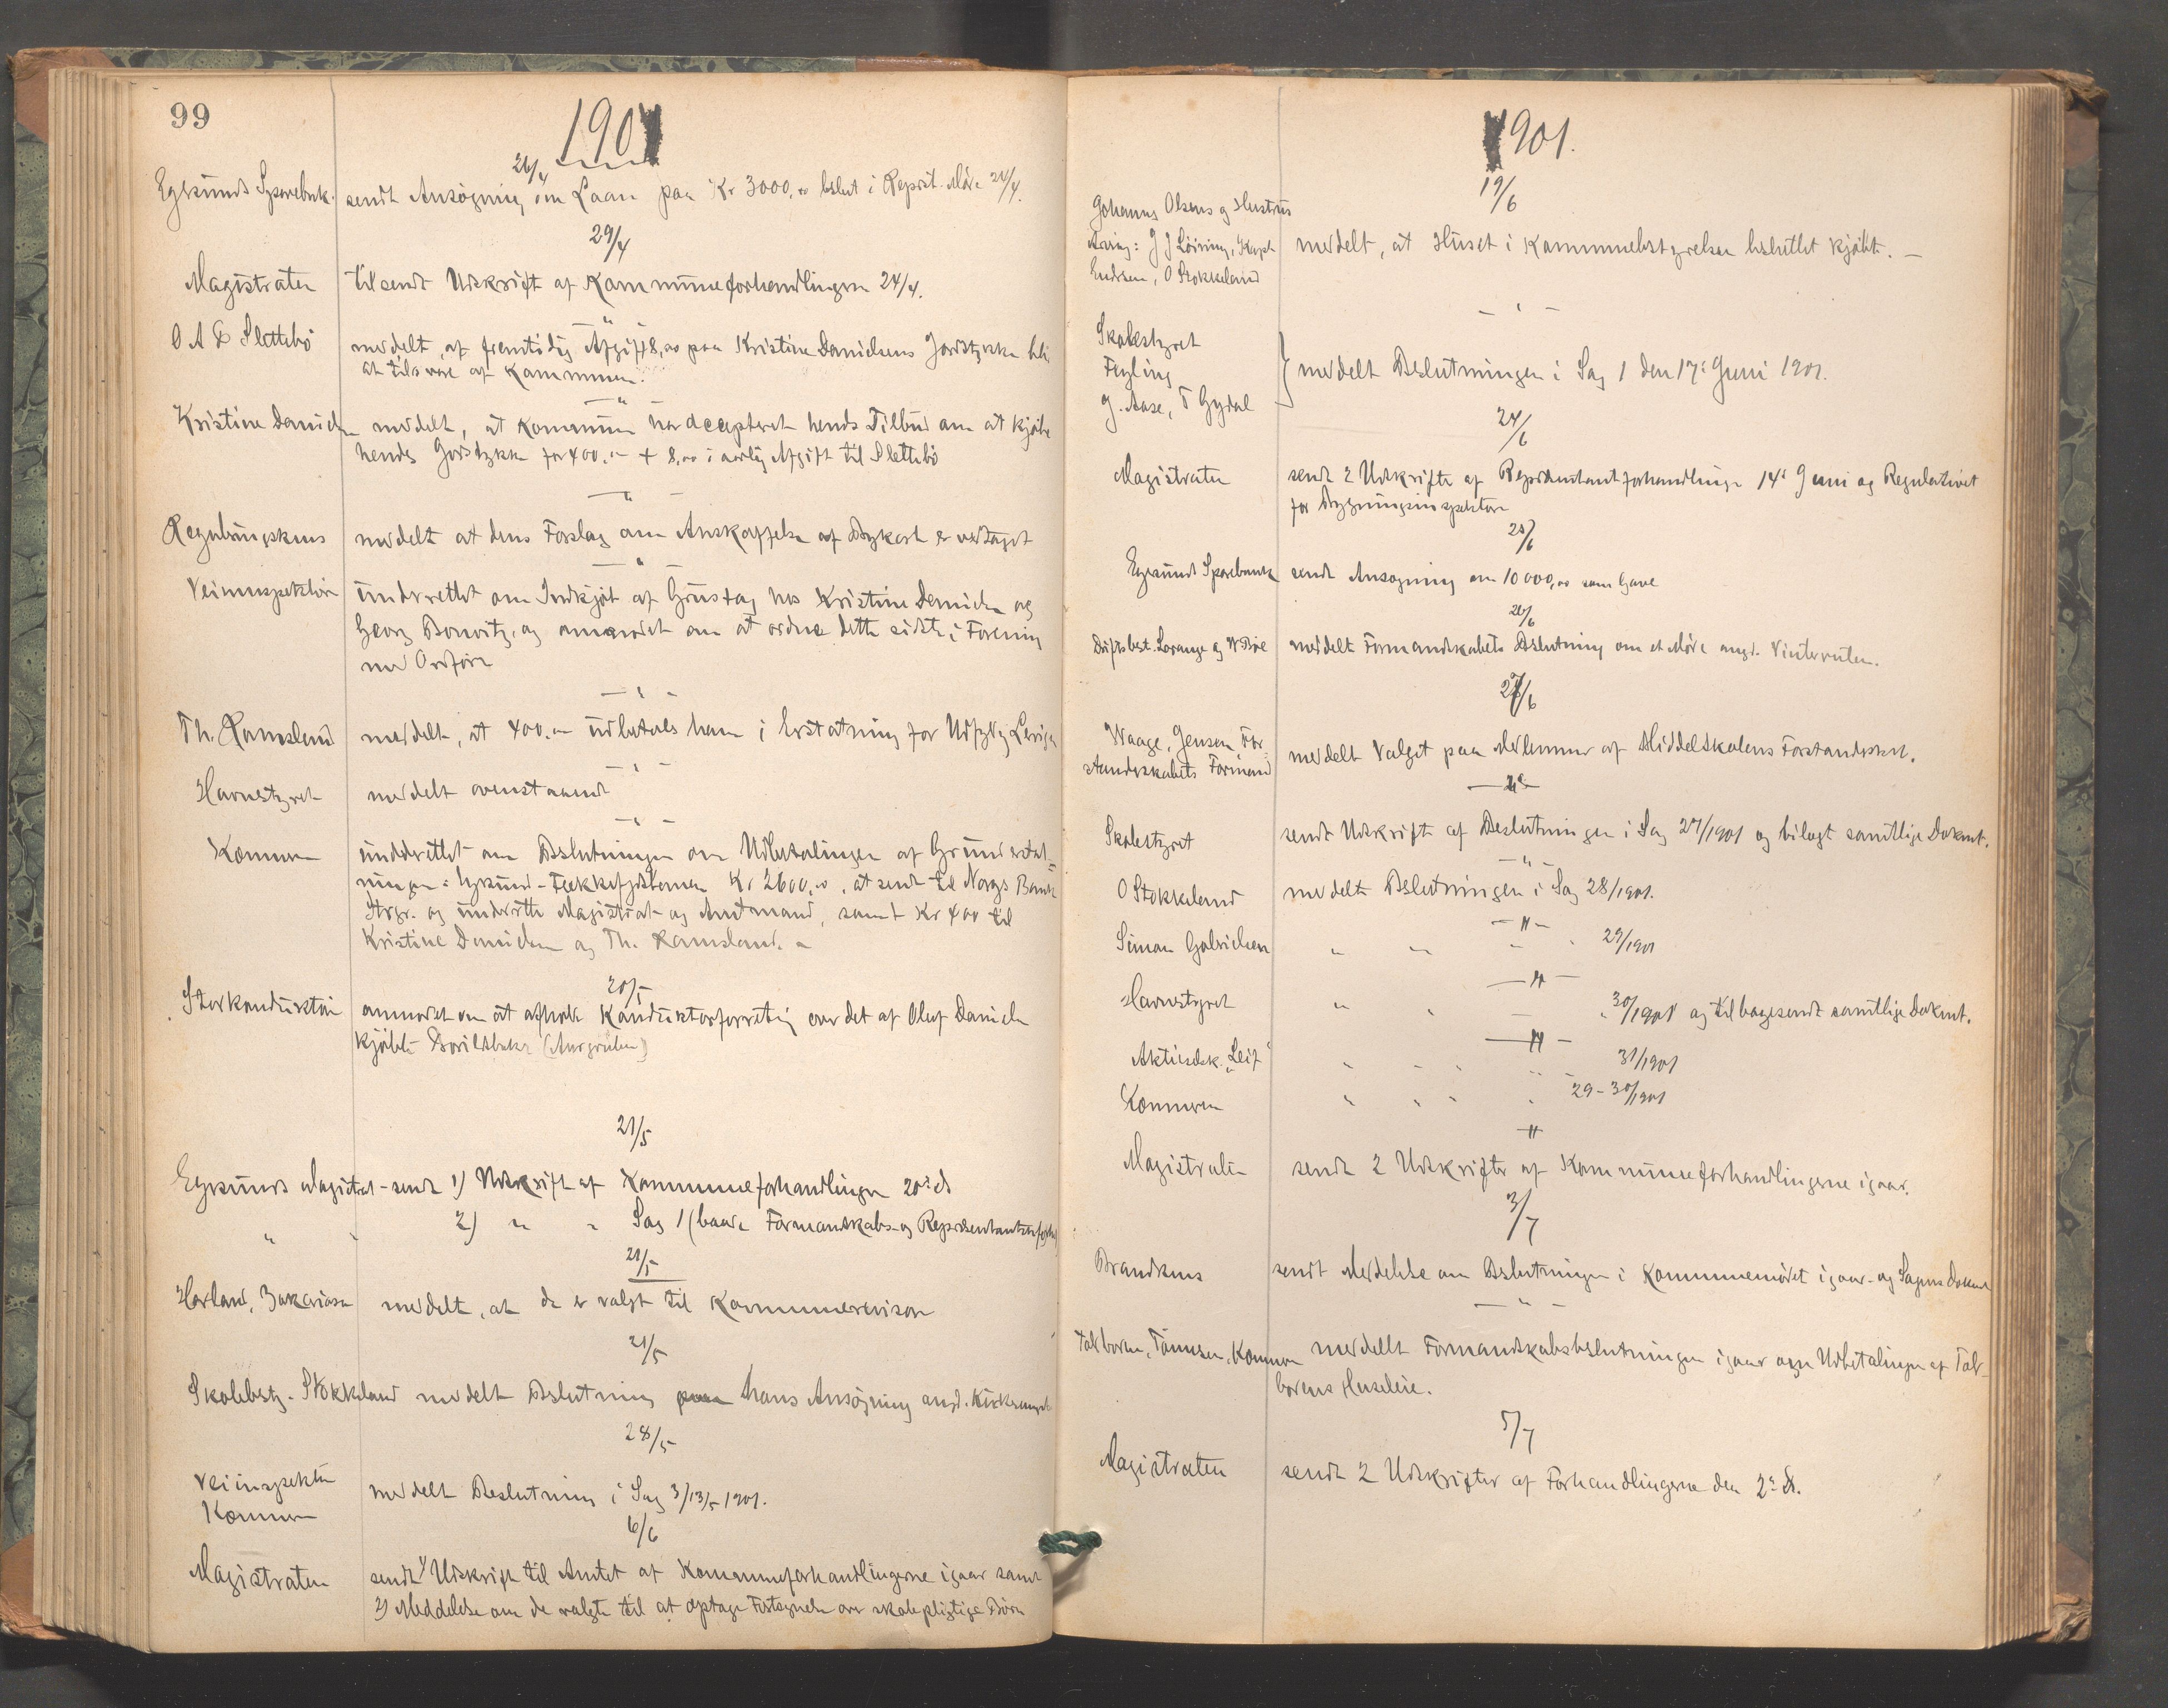 99
1901
26/4
Egersunds Sparebnk. sendt Ansøgning om Laan paa Kr 3000,00 beslut i Reprst. Møde 24/4.
29/4
Magistraten tilsendt Udskrift af Kommuneforhandlingen 24/4.
— " —
O A D Slettebö meddelt, at fremtidig Afgift 8,00 paa Kristine Danielsens Jordstykke bli
at tilsvare af Kommunen.
— " —
Kristine Danielsen meddelt, at Kommunen har accepteret hendes Tilbud om at kjøbe
hendes Jordstykke for 400.— + 8,00 i aarlig Afgift til Slettebö
— " —
Reguleringskms meddelt at dens Forslag om Anskaffelse af Bykart er vedtaget
— " —
Veiinspektøren underrettet om Indkjøb af Grustag hos Kristine Danielsen og
Georg Bowitz, og anmodet om at ordne dette sidste i Forening
med Ordfører
— " —
Th. Ramsland meddelt, at 400.— udbetales ham i Erstatning for Udfyldg
— " —
Havnestyret meddelt ovenstaaende
— " —
Kæmneren underrettet om Beslutningen om Udbetalingen af Grunderstat-
ningen: Egersund-Flekkefjordbanen Kr 2600,00, at sendt til Norges Bank
Stvgr. og underrette Magistrat og Amtmand, samt Kr 400 til
Kristine Danielsen og Th. Ramsland. —
20/5
Storkonduktør anmodet om at afholde Konduktørforretnig over det af Oluf Danielsen
kjøbte
21/5
Egersunds Magistrat - sendt 1) Udskrift af Kommuneforhandlingen 20de ds
" " 2) " " Sag 1 (baade Formandskabs- og Repræsentantskforh)
21/5
Havland, Zakariasen meddelt, at de er valgt til Kommunerevisorer
21/5
Skolebesty. Stokkeland meddelt Beslutning paa hans Ansøgning angd.
28/5
Veiinspektør
Kæmneren meddelt Beslutning i Sag 3/13/5 1901.
6/6
Magistraten sendt 1) Udskrift til Amtet af Kommuneforhandlingerne igaar samt
2) Meddelelse om de valgte til at optage Fortegnelse over skolepligtige Börn
1901.
19/6
Johannes Olsens og Hustrus
Arving: J J Löining, Kapt
Endresen, O Stokkeland meddelt, at Huset i Kommunebestyrelsen besluttet kjøbt. —
— " —
Skolestyret
Feyling
G. Aase, T Gydal meddelt Beslutningen i Sag 1 den 17de Juni 1901.
24/6
Magistraten sendt 2 Udskrifter af Repræsentantforhandlinger 14de Juni og Regulativet
for Bygningsinspektøren
25/6
Egersund Sparebank sendt Ansøgning om 10000,00 som Gave
26/6
Driftsbest. Lorange og W Böe meddelt Formandskabets Beslutning om et Møde angd. Vinterruten.
27/6
Waage, Jensen For-
standerskabets Formand meddelt Valget paa Medlemmer af Middelskolens Forstanderskb.
— " —
Skolestyret sendt Udskrift af Beslutningen i Sag 27/1901 og bilagt samtlige Dokmt.
— " —
O Stokkeland meddelt Beslutningen i Sag 28/1901.
— " —
Simon Gabrielsen " " " " 29/1901
— " —
Havnestyret " " " " 30/1901 og tilbagesendt samtlige Dokmt.
— " —
Aktieselsk. "Leif" " " " " 31/1901
Kæmneren " " " " 29-30/1901
— " —
Magistraten sendt 2 Udskrifter af Kommuneforhandlingerne igaar.
3/7
Brandkms sendt Meddelelse om Beslutningen i Kommunemødet igaar - og Sagens Dokmt
— " —
Talboren, Tönnesen, Kæmner meddelt Formandskabsbeslutningen igaar om Udbetalingen af Tal-
borens Husleie.
5/7
Magistraten sendt 2 Udskrifter af Forhandlingerne den 2de ds.